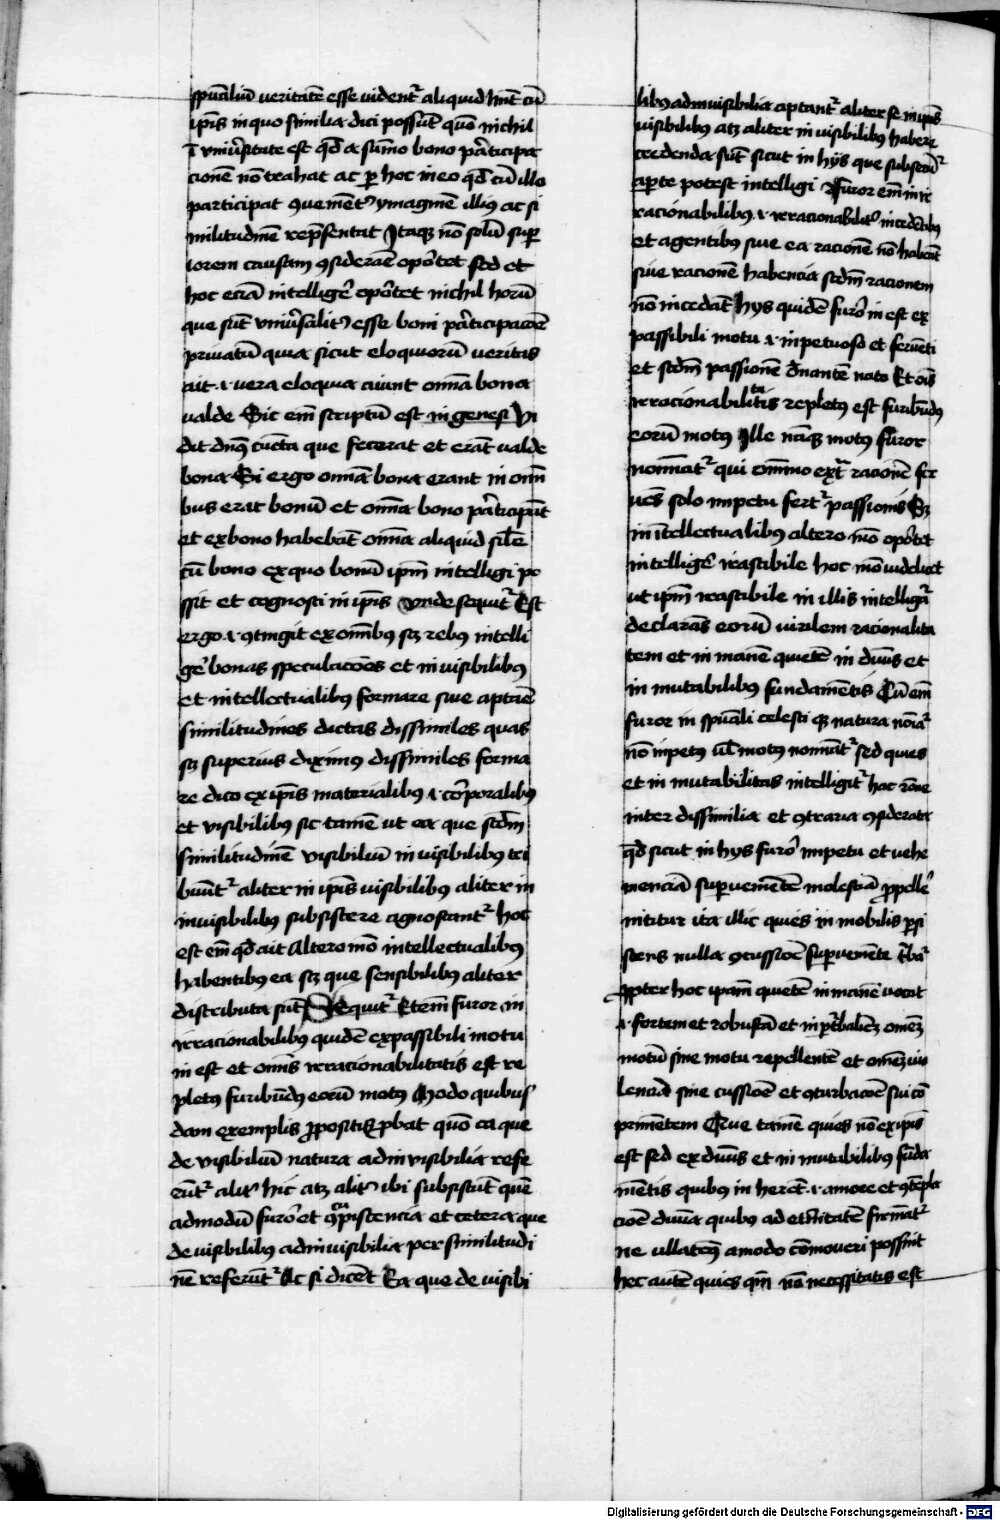 spūalium veritatē esse vident᷑ aliquid hn̄t cū
ip̄is in quo similia dici possūt quō nichil
ī vniūsitate est qd̄ a sūmo bono pārticipa
cionē nō trahat ac p hoc in eo qd̄ cū illo
participat ꝯuenient᷑ ymaginē illiꝰ ac si
militudinē rep̄sentat Itaqꝫ nō solū supe
iorem causam ꝯsiderare opōtet sed et
hoc eciā intelligē opōtet nichil horū
que sūt vniūsalit᷑ esse boni pārticipacōe
priuatū quia sicut eloquiorū veritas
ait .i. vera eloquia aiunt omīa bona
valde Sic em̄ scriptū est in genesi Vi
dit dn̄s cūcta que fecerat et erāt valde
bona Si ergo omīa bona erant in omī
bus erat bonū et omīa bono pārticipāt
et ex bono habebāt omīa aliquid sil̄e
cū bono ex quo bonū ip̄m intelligi po
ssit et cognosci in ip̄is Vnde sequit᷑ Est
ergo .i. ꝯtingit ex omībus sꝫ rebꝰ intelli
gē bonas speculacōes et in visibilibꝰ
et intellectualibꝰ formare siue aptare
similitudines dictas dissimiles quas
sꝫ superius diximꝰ dissimiles forma
re dico ex ip̄is materialibꝰ .i. corporalibꝰ
et visibilibꝰ sic tamē ut ea que scdm̄
similitudinē visibiliū in visibilibꝰ tri
buūt᷑ aliter in ip̄is visibilibꝰ aliter in
invisibilibꝰ subsistere agnoscant᷑ hoc
est em̄ qd̄ ait Altero mō intellectualibꝰ
habentibꝰ ea sꝫ que sensibilibꝰ aliter
distributa sūt Sequit᷑ Etem̄ furor in
irracionabilibꝰ quidē ex passibili motu
in est et omīs irracionabilitatis est re
pletꝰ furibūdꝰ eorū motꝰ Modo quibus
dam exemplis p̄positis probat quō ea que
de visibiliū natura ad invisibilia refe
rūt᷑ alit᷑ hic atꝫ alit᷑ ibi subsistūt quē
admodū furor et ꝯcupiscencia et cetera que
de visibilibꝰ ad invisibilia per similitudi
nē referūt᷑ Ac si dicēt Ea que de visibi
libꝰ ad invisibilia aptant᷑ aliter se in ip̄is
visibilibꝰ atꝫ aliter in visibilibꝰ habere
credenda sūt sicut in hijs que subsecūt᷑
aperte potest intelligi Furor em̄ in ir
racionabilibꝰ .i. irracionabilit᷑ incedētibꝰ
et agentibꝰ siue ea racionē nō habeāt
siue racionē habencia scdm̄ racionem
nō incedāt hijs quidē furor in est ex
passibili motu .i. inpetuoso et feruēti
et scdm̄ passionē dn̄antē nato Et oīs
irracionabilitatis repletꝰ est furibūdꝰ
eorū motus Ille nāqꝫ motꝰ furor
nomīat᷑ qui omīno ext᷑ racionē fer
ues solo impetu fert᷑ passionis Sꝫ
in intellectualibꝰ altero mō opōtet
intelligē irascibile hoc mō videlicet
ut ip̄m irascibile in illis intelligat᷑
declarās eorū virilem racionalita
tem et in manē quietē in diuīs et
in mutabilibꝰ fundamētis Cū em̄
furor in spūali celesti qꝫ natura noīat᷑
nō inpetꝰ ul̄ motꝰ nomināt᷑ sed quies
et in mutabilitas intelligit᷑ hac rōne
inter dissimilia et ꝯtraria ꝯsiderata
qd̄ sicut in hys furor impetu et vehe
menciā superuenientē molestiā p̄pellē
nititur ita illic quies in mobilis persi
stens nulla ꝯcussiōe superueniēte t᷑bat᷑
Propter hoc ipam̄ quietē in manē vocat
.i. fortem et robustā et inpertbabilē omēꝫ
motū sine motu repellentē et omēꝫ vio
lenciā sine cussiōe et ꝯturbacōe sui cō
primētem Que tamē quies nō ex ipīs
est sed ex diuīs et in mutabilibꝰ fūda
mētis quibꝰ in herēt .i. amore et ꝯtēpla
cioē diuīa quibꝰ ad et᷑nitatē firmāt᷑
ne vllatenꝰ a modo cōmoueri possint
hec autē quies qm̄ nō necessitatis est
Digitalisierung gefördert durch die Deutsche Forschungsgemeinschaft - DFG